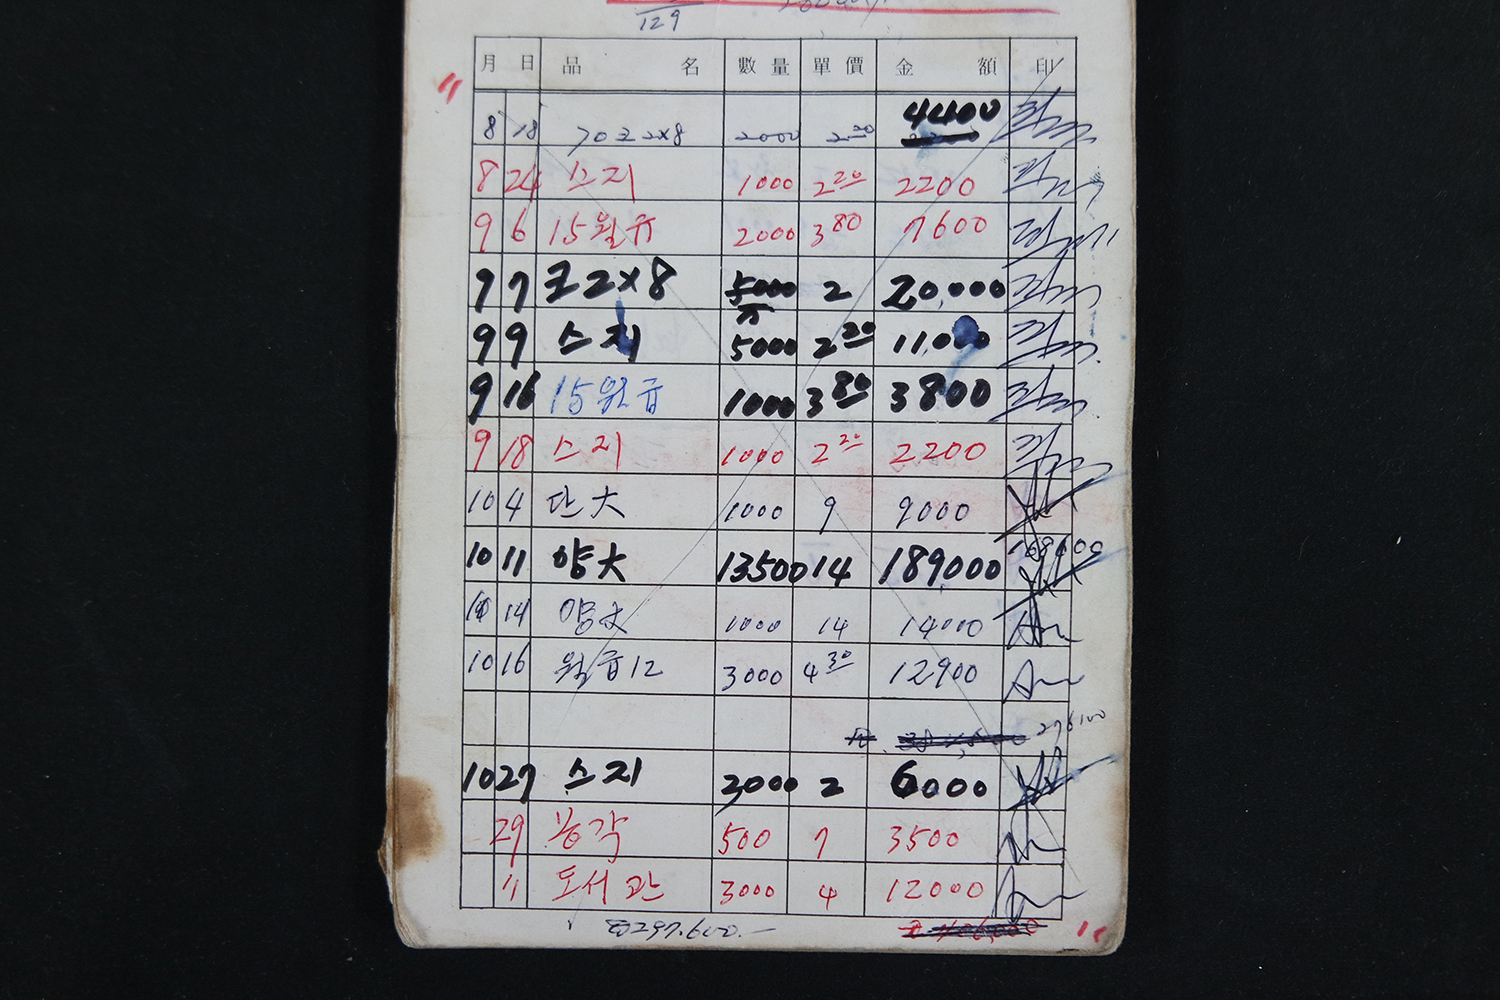 129
月 日 品 名 數量 單價 金 額 印
4400
8 18 70 코 2x8 2000 2.20
8 24 스지 1000 2 20 2200
9 6 15월규 2000 3 80 7600
9 7 코2x8 5000 2 20,000
9 9 스지 5000 2 20 11,000
9 16 15월급 1000 3 80 3800
9 18 스지 1000 2 20 2200
10 4 단大 1000 9 9000
10 11 양大 13500 14 189000
10 14 양大 1000 14 14000
10 16 월급12 3000 4 30 12900
276100
10 27 스지 3000 2 6000
29 봉각 500 7 3500
〃 도서관 3000 4 12000
297.600.—